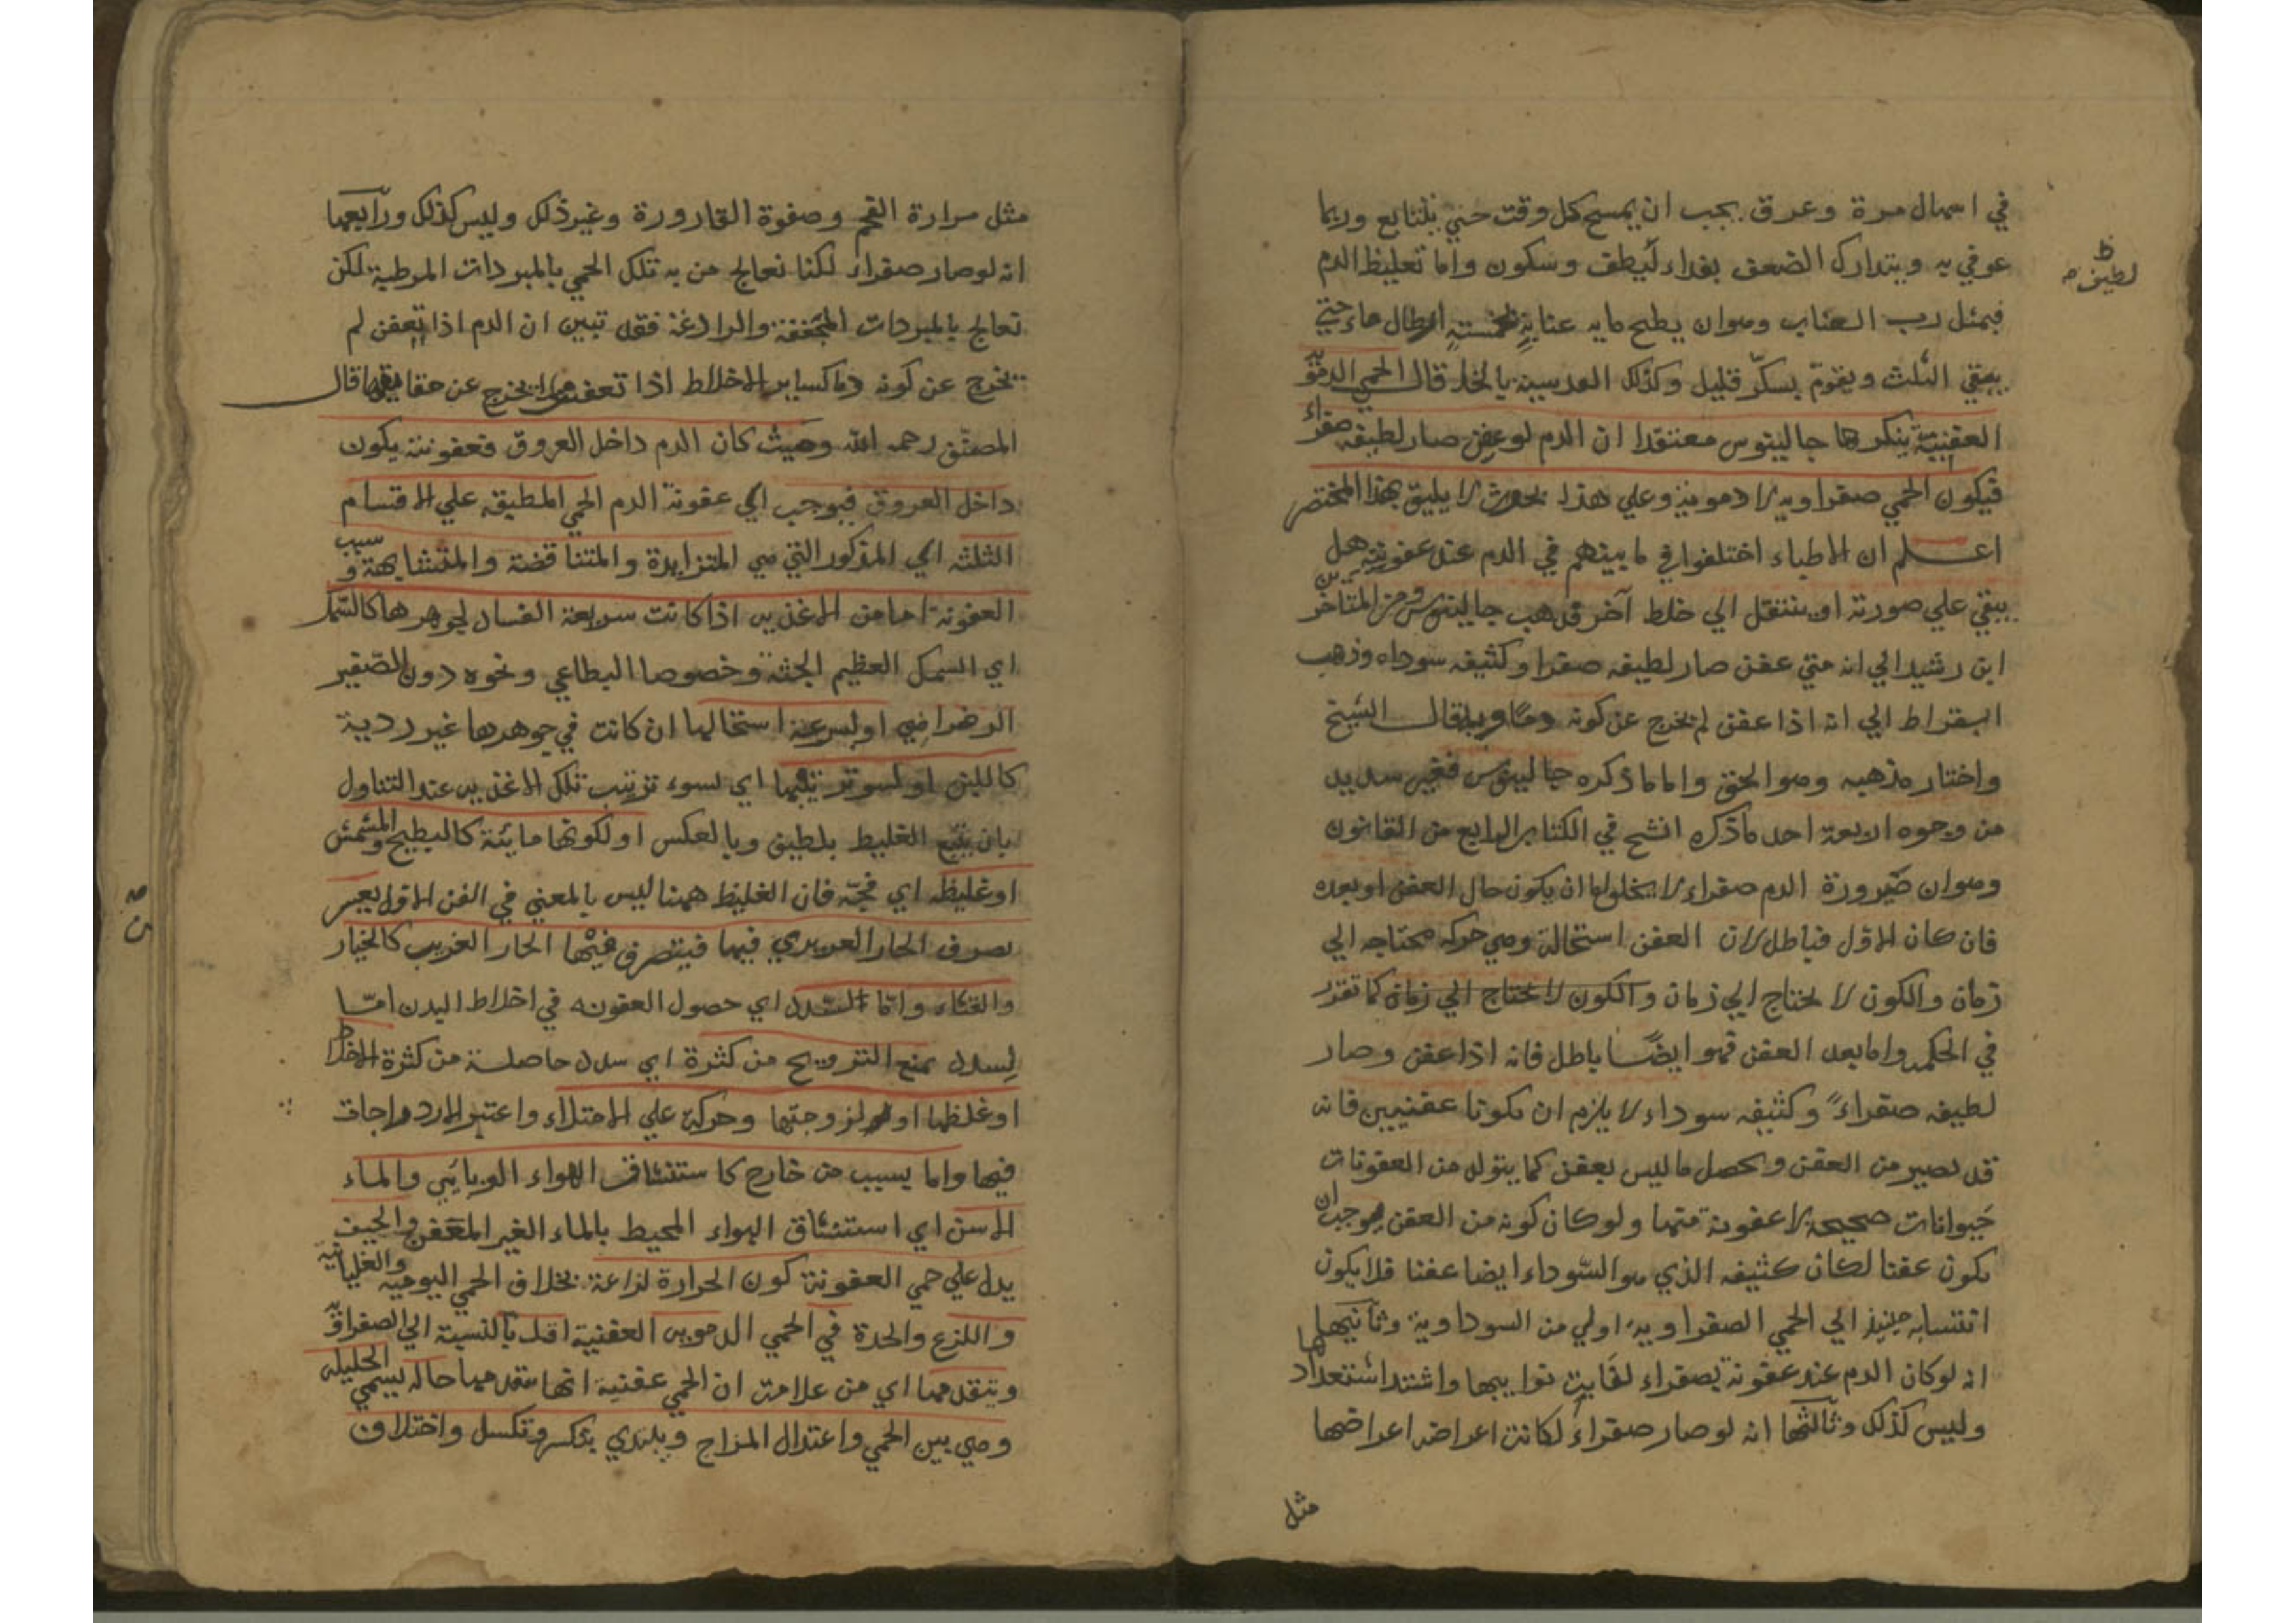 في اسهال مرة وعرق يجب ان يمسح كل وقت حتي يتتابع وربما
عوفي به ويتدارك الضعف بغداء لطيف وسكون واما تغليظ الدم
لطيف
فبمثل رب العناب وهوان يطبخ مايه عنابة خمسة ارطال ماء حتي
يبقي الثلث ويقوم بسكر قليل وكذلك العدسية بالخل قال الحمي الدموية
العفنية ينكرها جالينوس معتقدا ان الدم لو عفن صار لطيفه صفراء
فيكون الحمي صفراويه لا دموية وعلي هذا بحوث لا يليق بهذا المختصر
اعلم ان الاطباء اختلفوا في ما بينهم في الدم عند عفونته هل
يبقي علي صورته او ينتقل الي خلط آخر فذهب جالينوس ومن المتاخرين
ابن رشيد الي انه متي عفن صار لطيفه صفرا وكثيفه سوداء وذهب
البقراط الي انه اذا عفن لم يخرج عن كونه دما وبه قال الشيخ
واختار مذهبه وهو الحق واما ما ذكره جالينوس فغير سديد
من وجوه اربعة احد ما ذكره الشيخ في الكتاب الرابع من القانون
وهوان صيرورة الدم صفراء لا يخلو اما ان يكون حال العفن او بعده
فان كان الاول فباطل لان العفن استحالة وهي حركه محتاجه الي
زمان والكون لا يحتاج الي زمان والكون لا يحتاج الي زمان كما تقرر
في الحكمه واما بعد العفن فهو ايضا باطل فانه اذا عفن وصار
لطيفه صفراء وكثيفه سوداء لا يلزم ان يكونا عفنيين فانه
قد يصير من العفن ويحصل ما ليس بعفن كما يتولد من العفونات
حيوانات صحيحة لا عفونة منها ولو كان كونه من العفن موجب ان
يكون عفنا لكان كثيفه الذي هو السوداء ايضا عفنا فلا يكون
انتسابه حينيذ الي الحمي الصفراويه اولي من السوداوية وثانيها
انه لو كان الدم عند عفونة بصفراء لغابت نوايبها واشتد اشتعدادها
وليس كذلك وثالثها انه لو صار صفراء لكانت اعراضه اعراضها
مثل
مثل مرارة الفم وصفوة القارورة وغير ذلك وليس كذلك ورابعها
انه لو صار صفراء لكنا نعالج من به تلك الحمي بالمبردات المرطبة لكن
تعالج بالمبردات المجففة والرادغة فقد تبين ان الدم اذا تعفن لم
يخرج عن كونه دما كساير الاخلاط اذا تعفن لا يخرج عن حقايقها قال
المصنف رحمه الله وحيث كان الدم داخل العروق فعفونته يكون
داخل العروق فيوجب اي عفونة الدم الحمي المطبقه علي الاقسام
الثلثه اي المذكور التي هي المتزايدة والمتناقضة والمتشابهة وسبب
العفونة اما من الاغذيه اذا كانت سريعة الفساد لجوهرها كالسمك
اي السمك العظيم الجثة وخصوصا البطاعي ونحوه دون الصغير
الرضراضي او لسرعة استحالتها ان كانت في جوهرها غير ردية
كاللبن او لسوء ترتيبها اي لسوء ترتيب تلك الاغذيه عند التناول
بان يتبع الغليظ بلطيف وبالعكس او لكونها مايئة كالبطيخ والمشمش
او غليظه اي فجة فان الغليظ ههنا ليس بالمعني في الفن الاول يعسر
تصرف الحار الغريزي فيها فيتصرف فيها الحار الغريب كالخيار
والقثاء واما السدد اي حصول العفونه في اخلاط البدن اما
لسدد يمنع الترويح من كثرة اي سدد حاصلة من كثرة الاخلاط
او غلظها او لزوجتها وحركة علي الامتلاء واعتبر الازدواجات
فيها واما بسبب من خارج كاستنشاق الهواء الوبايي والماء
الاسن اي استنشاق الهواء المحيط بالماء الغير المتعفن والجيف
يدل علي حمي العفونة كون الحرارة لذاعة بخلاف الحمي اليوميه والغليانية
واللزع والحدة في الحمي الدمويه العفنية اقل بالنسبة الي الصفراوية
ويتقدمها اي من علامة ان الحمي عفنية انها يتقدمها حاله يسمي الحليله
وهي بين الحمي واعتدال المزاج ويبتدي بتكسر وتكسل واختلاف